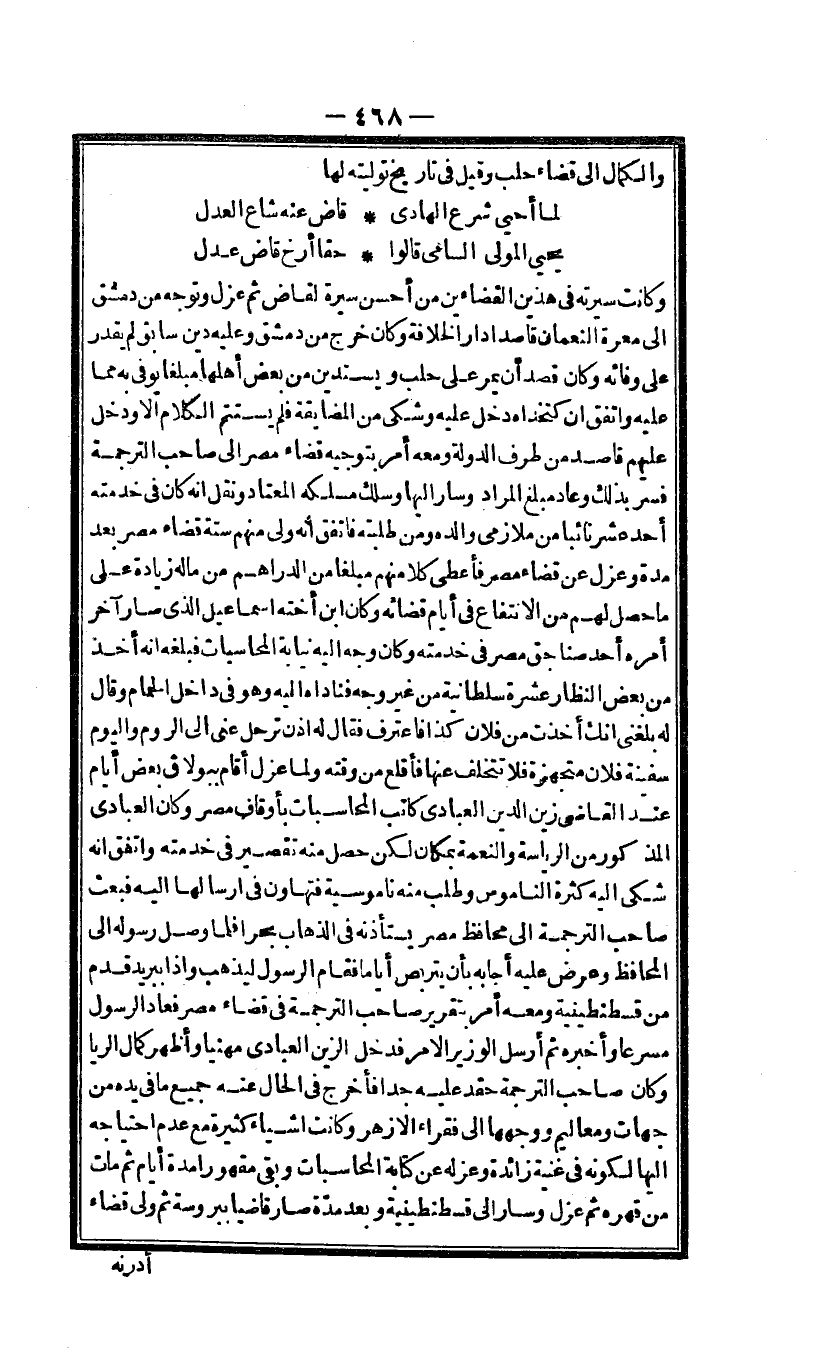 — ٤٦٨ —
والكمال الى قضاء حلب وقيل فى تاريخ توليته لها
لما أحيى شرع الهادى * قاض عنه شاع العدل
يحيى المولى السامى قالوا * حقا أرخ قاض عدل
وكانت سيرته فى هذين القضاءين من أحسن سيرة لقاض ثم عزل وتوجه من دمشق
الى معرة النعمان قاصدا دار الخلافة وكان خرج من دمشق وعليه دين سابق لم يقدر
على وفائه وكان قصد أن يمر على حلب ويستدين من بعض أهلها مبلغا يوفى به مما
عليه واتفق ان كتخداه دخل عليه وشكى من المضايقة فلم يستتم الكلام الا ودخل
عليهم قاصد من طرف الدولة ومعه أمر بتوجيه قضاء مصر الى صاحب الترجمة
فسر بذلك وعاد مبلغ المراد وسار اليها وسلك مسلكه المعتاد ونقل انه كان فى خدمته
أحد عشر نائبا من ملازمى والده ومن طلبته فاتفق أنه ولى منهم ستة قضاء مصر بعد
مدة وعزل عن قضاء مصر فأعطى كلا منهم مبلغا من الدراهم من ماله زيادة على
ما حصل لهم من الانتفاع فى أيام قضائه وكان ابن أخته اسماعيل الذى صار آخر
أمره أحد صناجق مصر فى خدمته وكان وجه اليه نيابة المحاسبات فبلغه انه أخذ
من بعض النظار عشرة سلطانية من غير وجه فناداه اليه وهو فى داخل الحمام وقال
له بلغنى انك أخذت من فلان كذا فاعترف فقال له اذن ترحل عنى الى الروم واليوم
سفينة فلان متجهزة فلا تتخلف عنها فأقلع من وقته ولما عزل أقام ببولاق بعض أيام
عند القاضى زين الدين العبادى كاتب المحاسبات بأوقاف مصر وكان العبادى
المذكور من الرياسة والنعمة بمكان لكن حصل منه تقصير فى خدمته واتفق انه
شكى اليه كثرة الناموس وطلب منه ناموسية فتهاون فى ارسالها اليه فبعث
صاحب الترجمة الى محافظ مصر يستأذنه فى الذهاب بحرا فلما وصل رسوله الى
المحافظ وعرض عليه أجابه بأن يتربص أياما فقام الرسول ليذهب واذا ببريد قدم
من قسطنطينية ومعه أمر بتقرير صاحب الترجمة فى قضاء مصر فعاد الرسول
مسرعا وأخبره ثم أرسل الوزير الامر فدخل الزين العبادى مهنيا وأظهر كمال الريا
وكان صاحب الترجمة حقد عليه جدا فأخرج فى الحال عنه جميع ما فى يده من
جهات ومعاليم ووجهها الى فقراء الازهر وكانت اشياء كثيرة مع عدم احتياجه
اليها لكونه فى غنية زائدة وعزله عن كتابة المحاسبات وبقى مقهورا مدة أيام ثم مات
من قهره ثم عزل وسار الى قسطنطينية وبعد مدّة صار قاضيا ببروسة ثم ولى قضاء
أدرنه